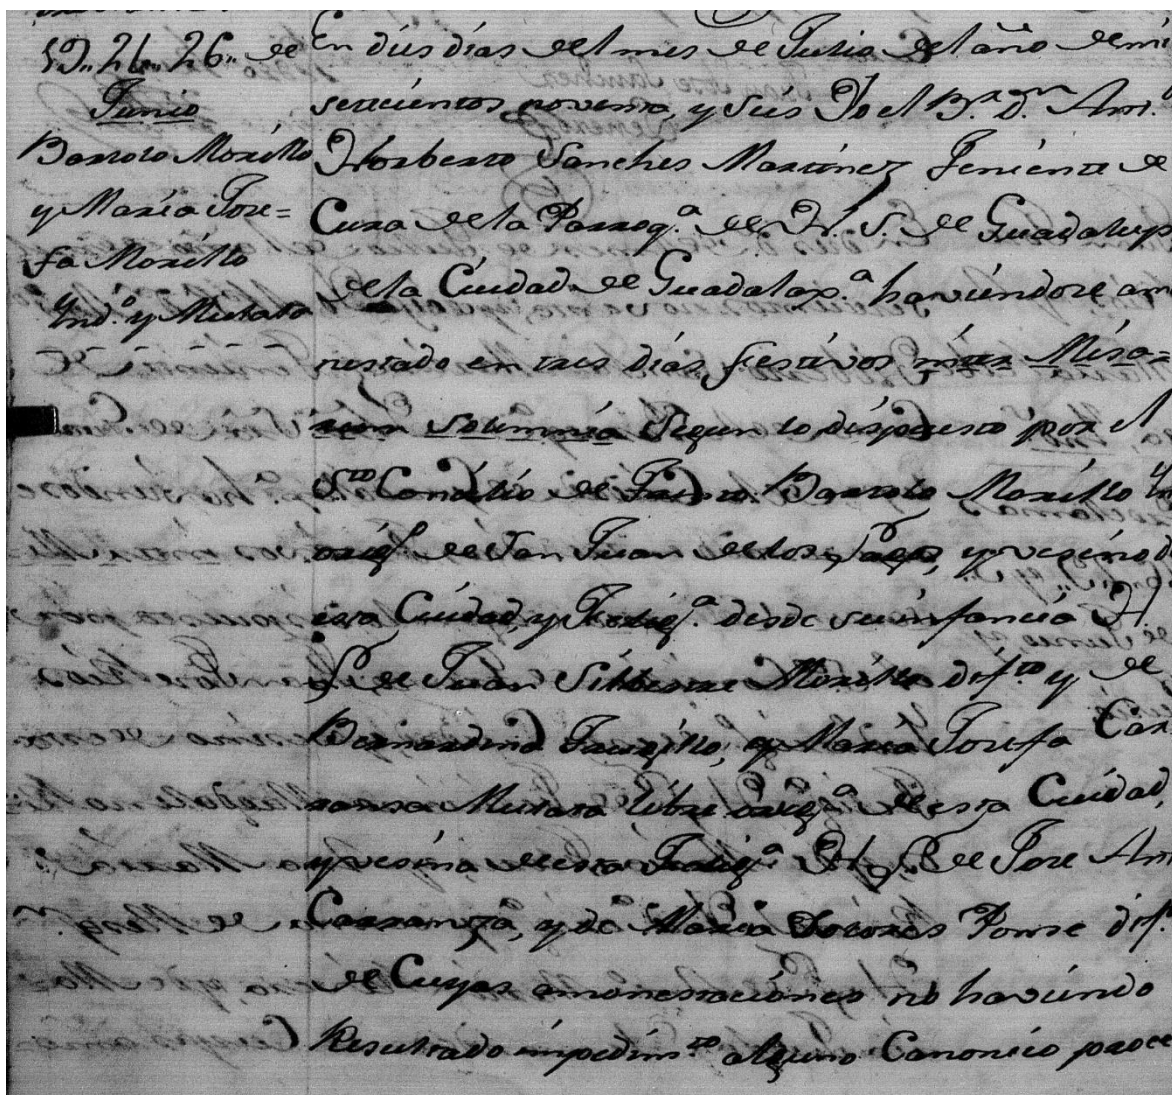 19,, 21,, 26,, de
Junio
Bartolo Morillo
y María Jose=
fa Morillo
Ind.º y Mulata
En dies días del mes de Julio del año de mi
setecientos noventa, y seis Yo el B.r D.n Ant.º
Norberto Sanches Martinez Teniente de
Cura de la Parroq.a de N. S. de Guadalup
de la Ciudad de Guadalax.a haviendose am
nestado en tres días festivos inter Misa=
rum Solemnia Segun lo dispuesto por el
S.to Concilio de Trento. Bartolo Morillo Yn
orig.l de San Juan de los y vesino d
esta Ciudad, y Felig.a desde su infancia H
L de Juan Silbestre Morillo dif.to y de
Bernardina Trugillo, y María Josefa Car
ransa Mulata libre orig.a de esta Ciudad,
y vesina de esta Felig.a H. L. de Jose Ant
Carranza, y de María Dolores Ponse dif.
de Cuyas amonestaciones no haviendo
Resultado impedim.to alguno Canonico proce